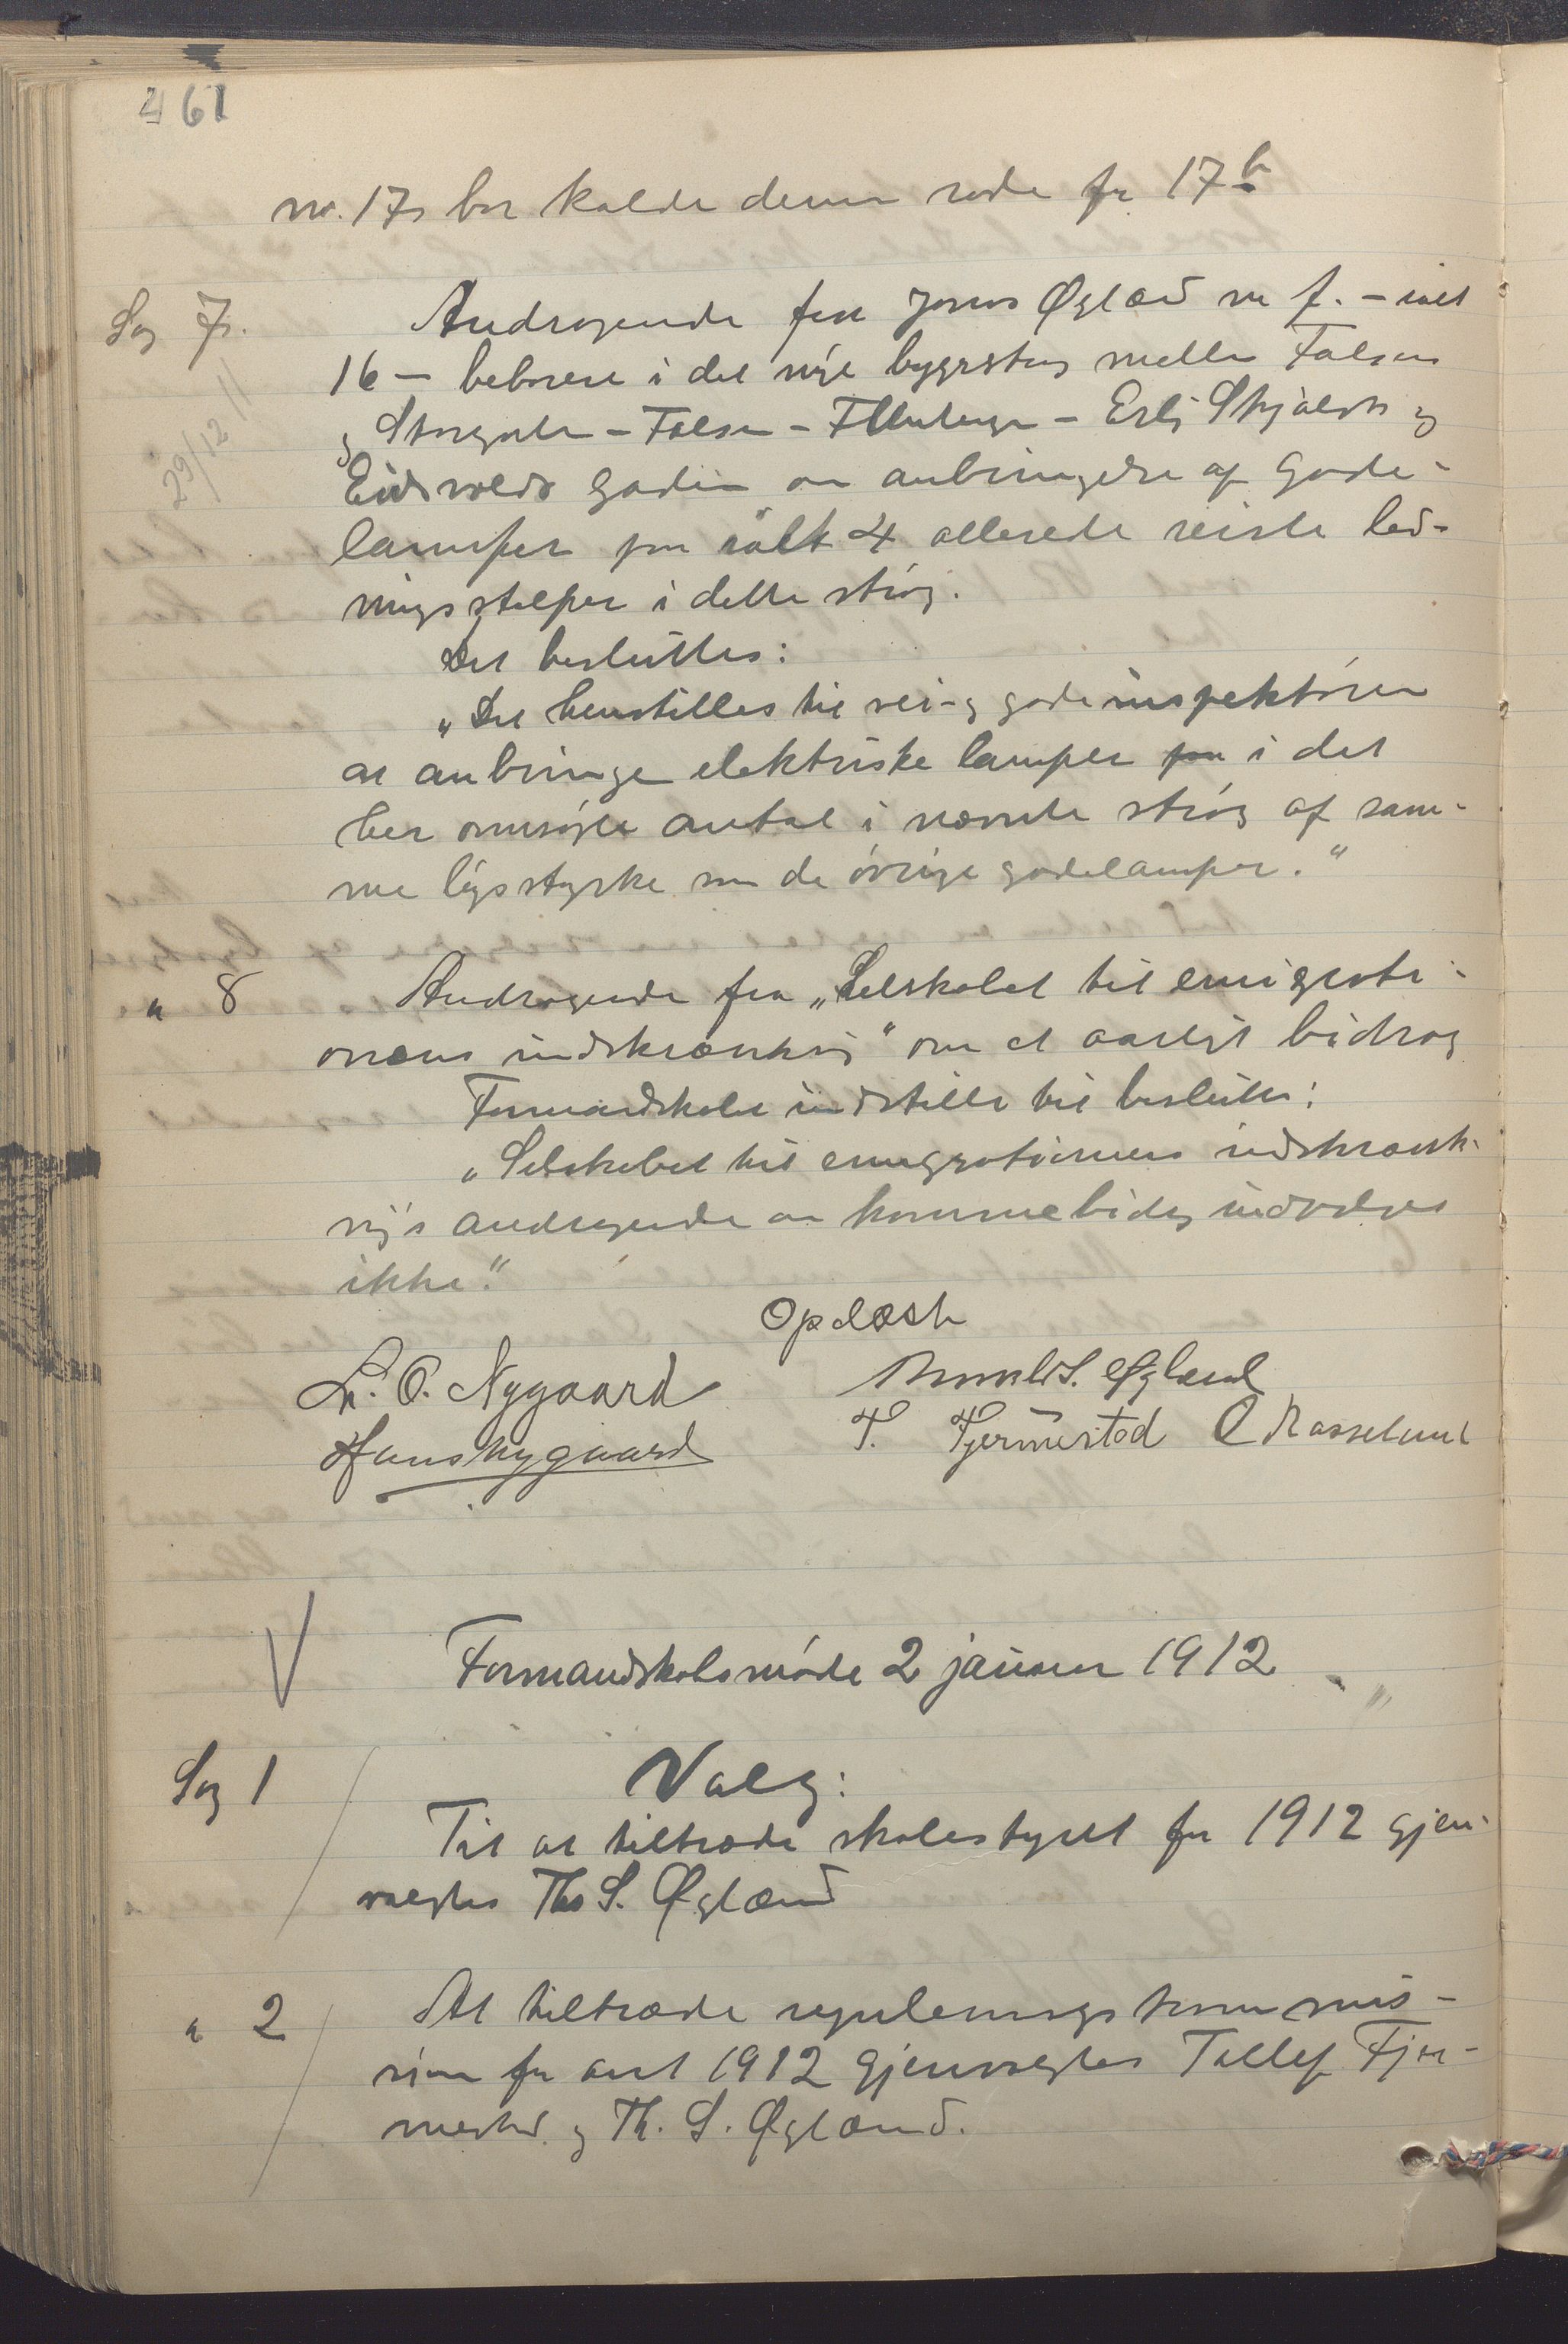 461
nr. 17, bør kalde denne rode for 17b
Sag 7. Andragende fra Jonas Øglænd m fl. – ialt
16 – beboere i det nye bygestrøg mellem Falsens
og Storgaten – Falsen – – Erling Skjalgs og
Eidsvolds gaden om anbringelse af gade-
lamper paa ialt 4 allerede reiste led-
ningsstolper i dette strøg.
29/12 11
Det besluttes:
„Det henstilles til vei- og gadeinspektøren
at anbringe elektriske lamper paa i det
her omsøgte antal i nævnte strøg af sam-
me lysstyrke som de øvrige gadelamper."
" 8 Andragende fra „Selskabet til emigrati-
onens indskrænkning" om et aarligt bidrag
Formandskabet indstiller til beslutter:
„Selskabet til emigrationens indskrænk-
nings andragende om kommunebidrag indvilges
ikke."
Oplæst
L. O. Nygaard S. Øglænd
Hans Nygaard T. Fjermestad O Rasselund
V Formandskabsmøde 2 januar 1912
Sag 1 Valg:
Til at tiltræde skolestyret for 1912 gjen-
valgtes Ths S. Øglænd
" 2 At tiltræde reguleringskommis-
sion for aaret 1912 gjenvalgtes Tollef Fjer-
mestad og Th. S. Øglænd.